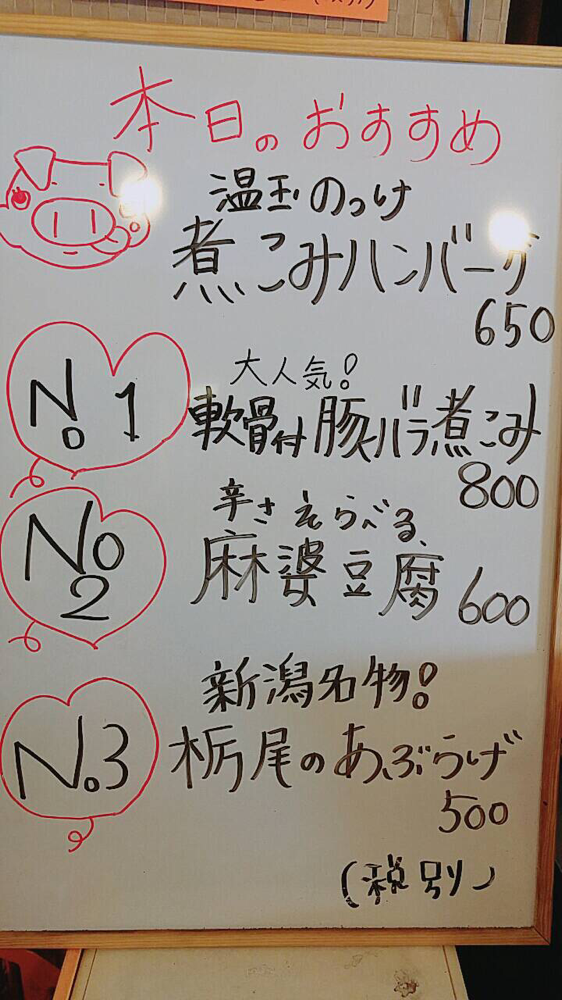 本日のおすすめ
温玉のっけ
煮こみハンバーグ
650
No1
大人気!
軟骨付豚バラ煮こみ
800
No2
辛さえらべる、
麻婆豆腐 600
No.3
新潟名物!
栃尾のあぶらげ
500
(税別)